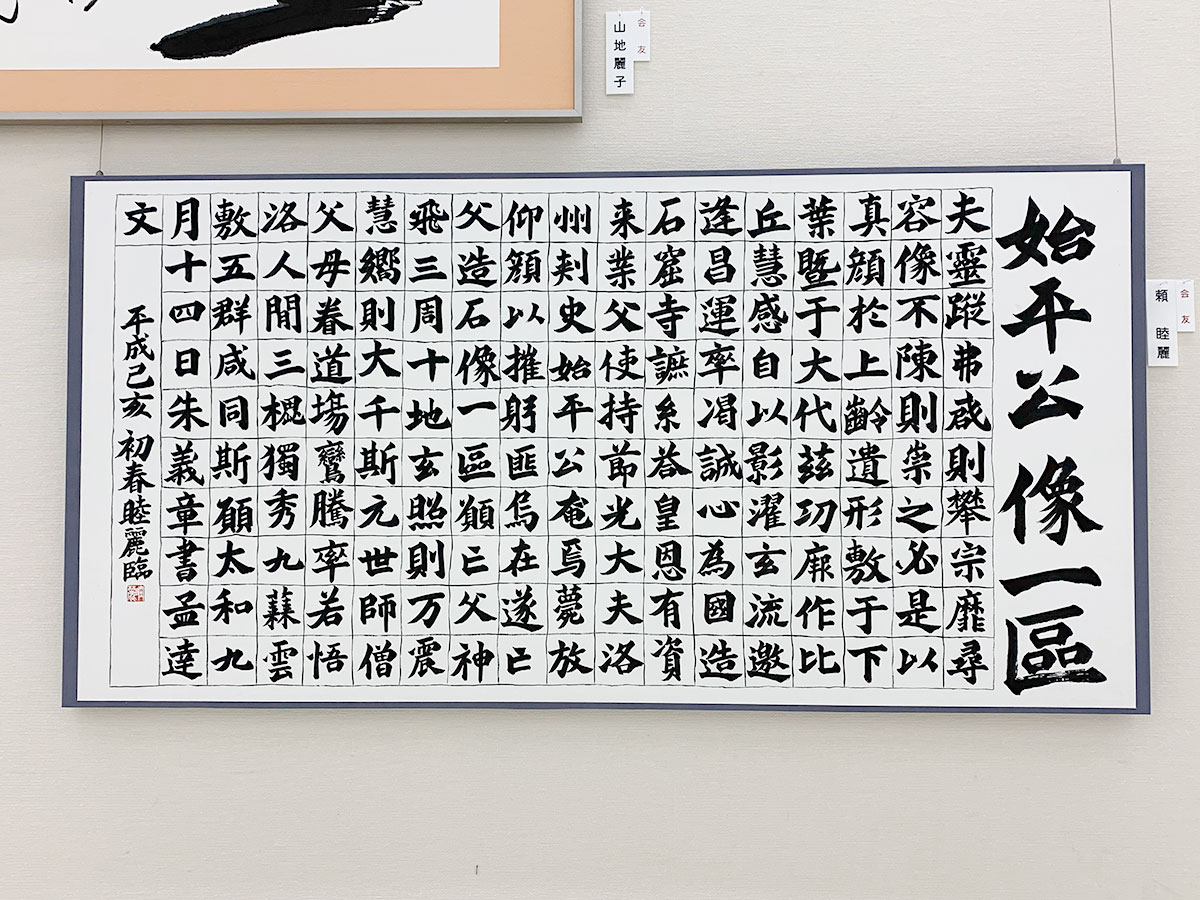 会友
山地麗子
会友
頼 睦麗
始平公像一區
夫靈蹤弗啟則攀宗靡尋
容像不陳則崇之必是以
真顔於上齡遺形敷于下
葉暨于大代茲功厥作比
丘慧感自以影濯玄流邀
逢昌運率渴誠心為國造
石窟寺謶系荅皇恩有資
来業父使持節光大夫洛
州刺史始平公奄焉薨放
仰顔以摧躬匪烏在遂亡
父造石像一區願亡父神
飛三周十地玄照則万震
慧嚮則大千斯元世師僧
父母眷道場鸞騰率若悟
洛人間三槐獨秀九蕀雲
敷五群咸同斯願太和九
月十四日朱義章書孟達
文
平成己亥 初春睦麗臨